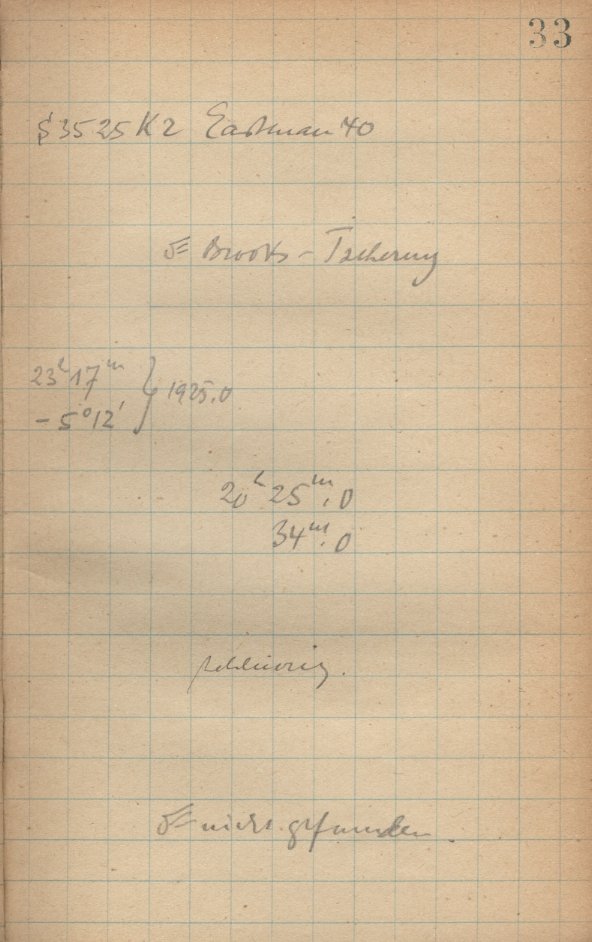 33
§3525 K2 Eastman 40
☄ Brooks - Tscherny
23ʰ17ᵐ } 1925.0
-5°12'
20ʰ25ᵐ.0
34ᵐ.0
schleierig.
☄ nicht gefunden